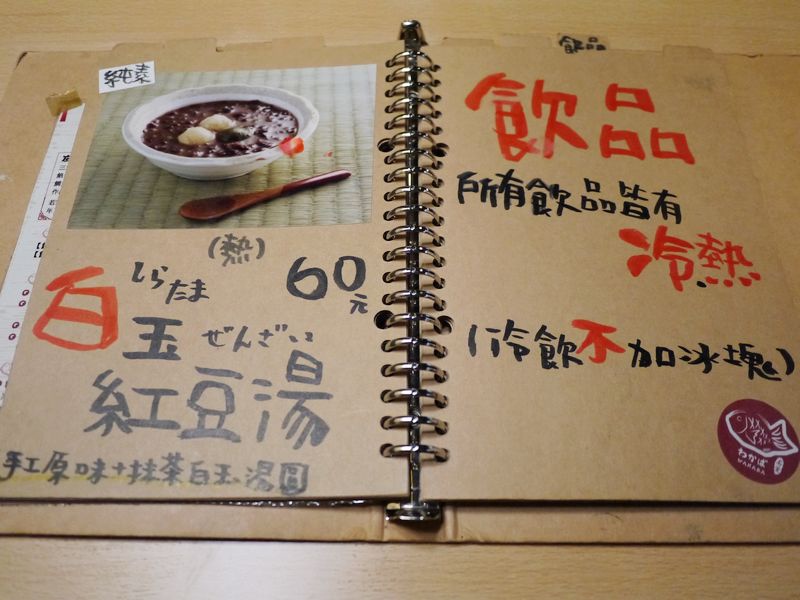 純素
(熱)
白玉
しらたま
ぜんざい
60元
紅豆湯
手工原味+抹茶白玉湯圓
飲品
飲品
所有飲品皆有
冷熱
(冷飲不加冰塊)
わかば
WAKABA